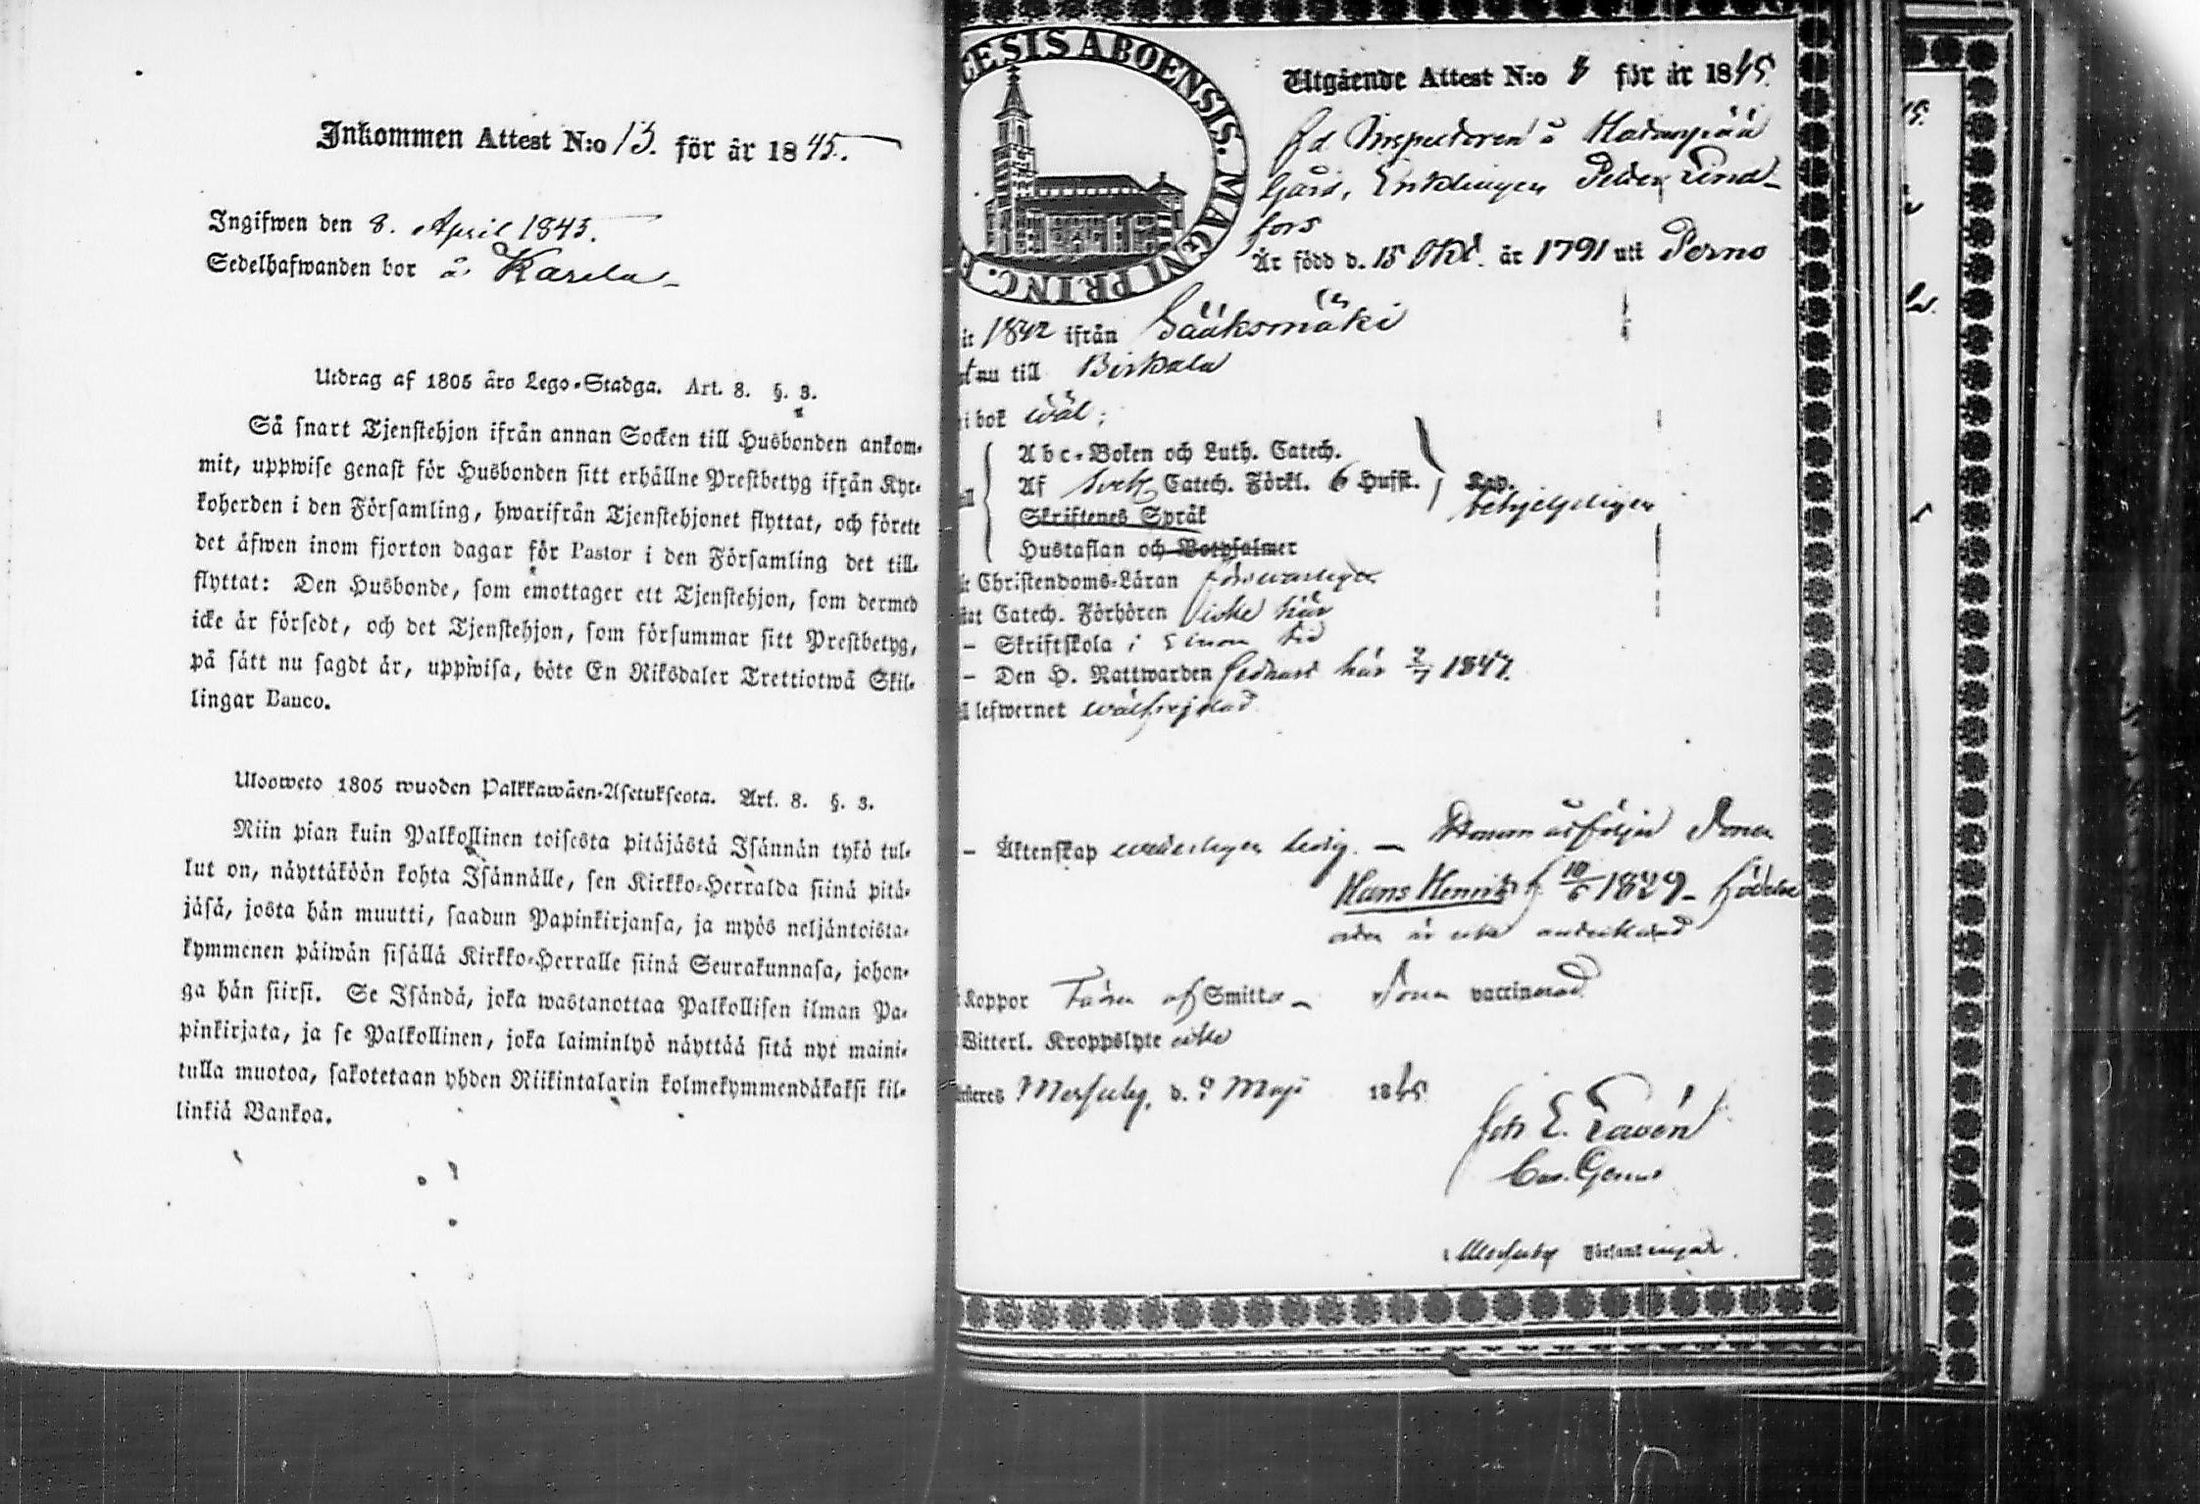 Inkommen Attest N:o 13. för år 1845.
Ingifwen den 8. April 1845.
Sedelhafwanden bor å Karela
Utdrag af 1805 åro Lego-Stadga. Art. 8. §. 3.
Så snart Tjenstehjon ifrån annan Socken till Husbonden ankom-
mit, uppwise genast för Husbonden sitt erhållne Prestbetyg ifrån Kyr-
koherden i den Församling, hwarifrån Tjenstehjonet flyttat, och förete
det åfwen inom fjorton dagar för Pastor i den Församling det till-
flyttat: Den Husbonde, som emottager ett Tjenstehjon, som dermed
icke är försedt, och det Tjenstehjon, som försummar sitt Prestbetyg,
på sått nu sagdt år, uppwisa, böte En Riksdaler Trettiotwå Skil-
lingar Banco.
Ulosweto 1805 wuoden Palkkawäen-Asetuksesta. Art. 8. §. 3.
Niin pian kuin Palkollinen toisesta pitäjästä Isännän tykö tul-
lut on, näyttäköön kohta Isännälle, sen Kirkko-Herralda siinä pitä-
jäsä, josta hän muutti, saadun Papinkirjansa, ja myös neljäntoista-
kymmenen päiwän sisällä Kirkko-Herralle siinä Seurakunnasa, johon-
ga hän siirsi. Se Isändä, joka wastanottaa Palkollisen ilman Pa-
pinkirjata, ja se Palkollinen, joka laiminlyö näyttää sitä nyt maini-
tulla muotoa, sakotetaan yhden Riikintalarin kolmekymmendäkaksi kil-
linkiä Bankoa.
CESIS ABOENSIS. MAGNI PRINC. F
Utgående Attest N:o för år 1845.
fd Inspectoren å
Gård, Enklingen Petter Lind-
fors
Är född d. 15 Okt. år 1791 uti Perno
1842 ifrån Sääksmäki
nu till Birkala
i bok wäl;
Abc-Boken och Luth. Catech.
Af Svek Catech. Förkl. 6 Hufst. Kap.
behjelpligen
Skriftenes Språk
Hustaflan och Botpsalmer
Christendoms-Läran försvarligen
Catech. Förhören icke här
– Skriftskola i sinom tid
– Den H. Nattwarden sednast här 1844.
lefwernet wälfrejdad
– Äktenskap wederligen ledig. — Honom åtföljer Sonen
Hans Henrik f. 10/5 1829 – Födelse
orten är icke antecknad
Koppor Faren af Smitta – Sonen vaccinerad
Witterl. Kroppslyte icke
Messuby, d. Maji 1845
Joh E. Favén
Messuby Församlingar.